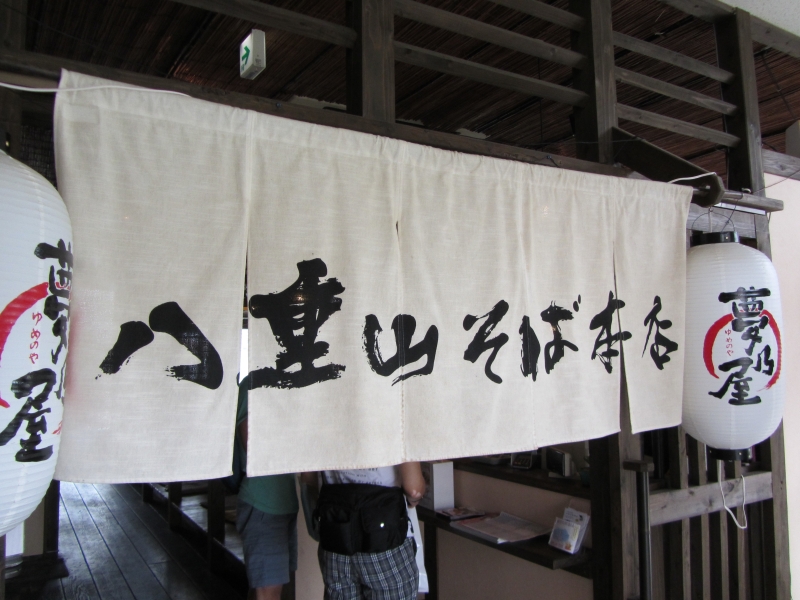 八重山そば本店
夢乃屋
ゆめのや
夢乃屋
ゆめのや